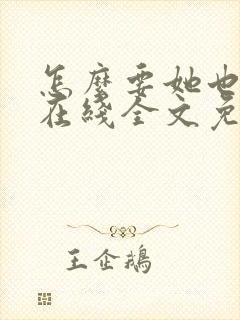 怎麽要她也
在綫全文免
王企鵝